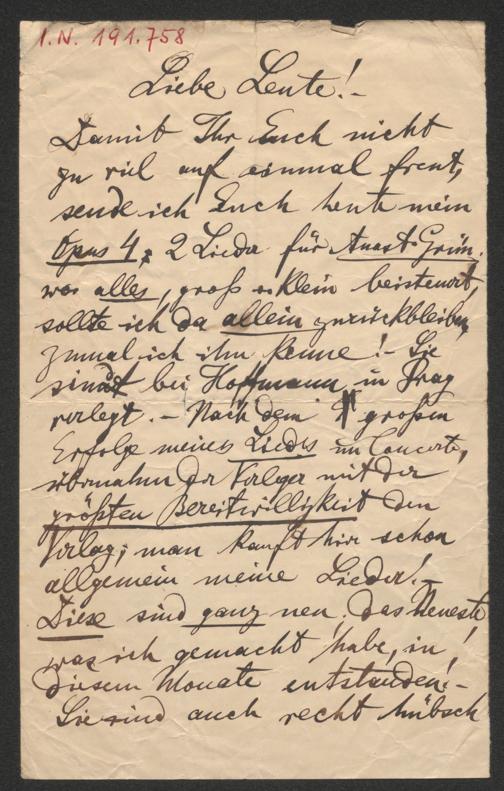 I.N. 191.758
Liebe Leute! -
Damit Ihr Euch nicht
zu viel auf einmal freut,
sende ich Euch heute mein
Opus 4, 2 Lieder für Anast. Grün.
wo alles, groß u Klein beisteuert,
sollte ich da allein zurückbleiben,
zumal ich ihn kenne! - Sie
sind bei Hoffmann in Prag
verlegt. - Nach dem großen
Erfolge meines Liedes im Concerte,
übernahm der Verleger mit der
größten Bereitwilligkeit den
Verlag; man kauft hier schon
allgemein meine Lieder! -
Diese sind ganz neu, das Neueste
was ich gemacht habe, in
diesem Monate entstanden! -
Sie sind auch recht hübsch